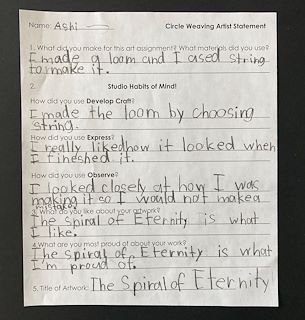 Name: Ashi
Circle Weaving Artist Statement
1. What did you make for this art assignment? What materials did you use?
I made a loam and I ased string
to make it.
2. Studio Habits of Mind!
How did you use Develop Craft?
I made the loom by choosing
string.
How did you use Express?
I really liked how it looked when
I fineshed it.
How did you use Observe?
I looked closely at how I was
making it so I would not make a
mistakes
3. What do you like about your artwork?
The Spiral of Eternity is what
I like.
4. What are you most proud of about your work?
The spiral of Eternity is what
I'm proud of.
5. Title of Artwork: The Spiral of Eternity